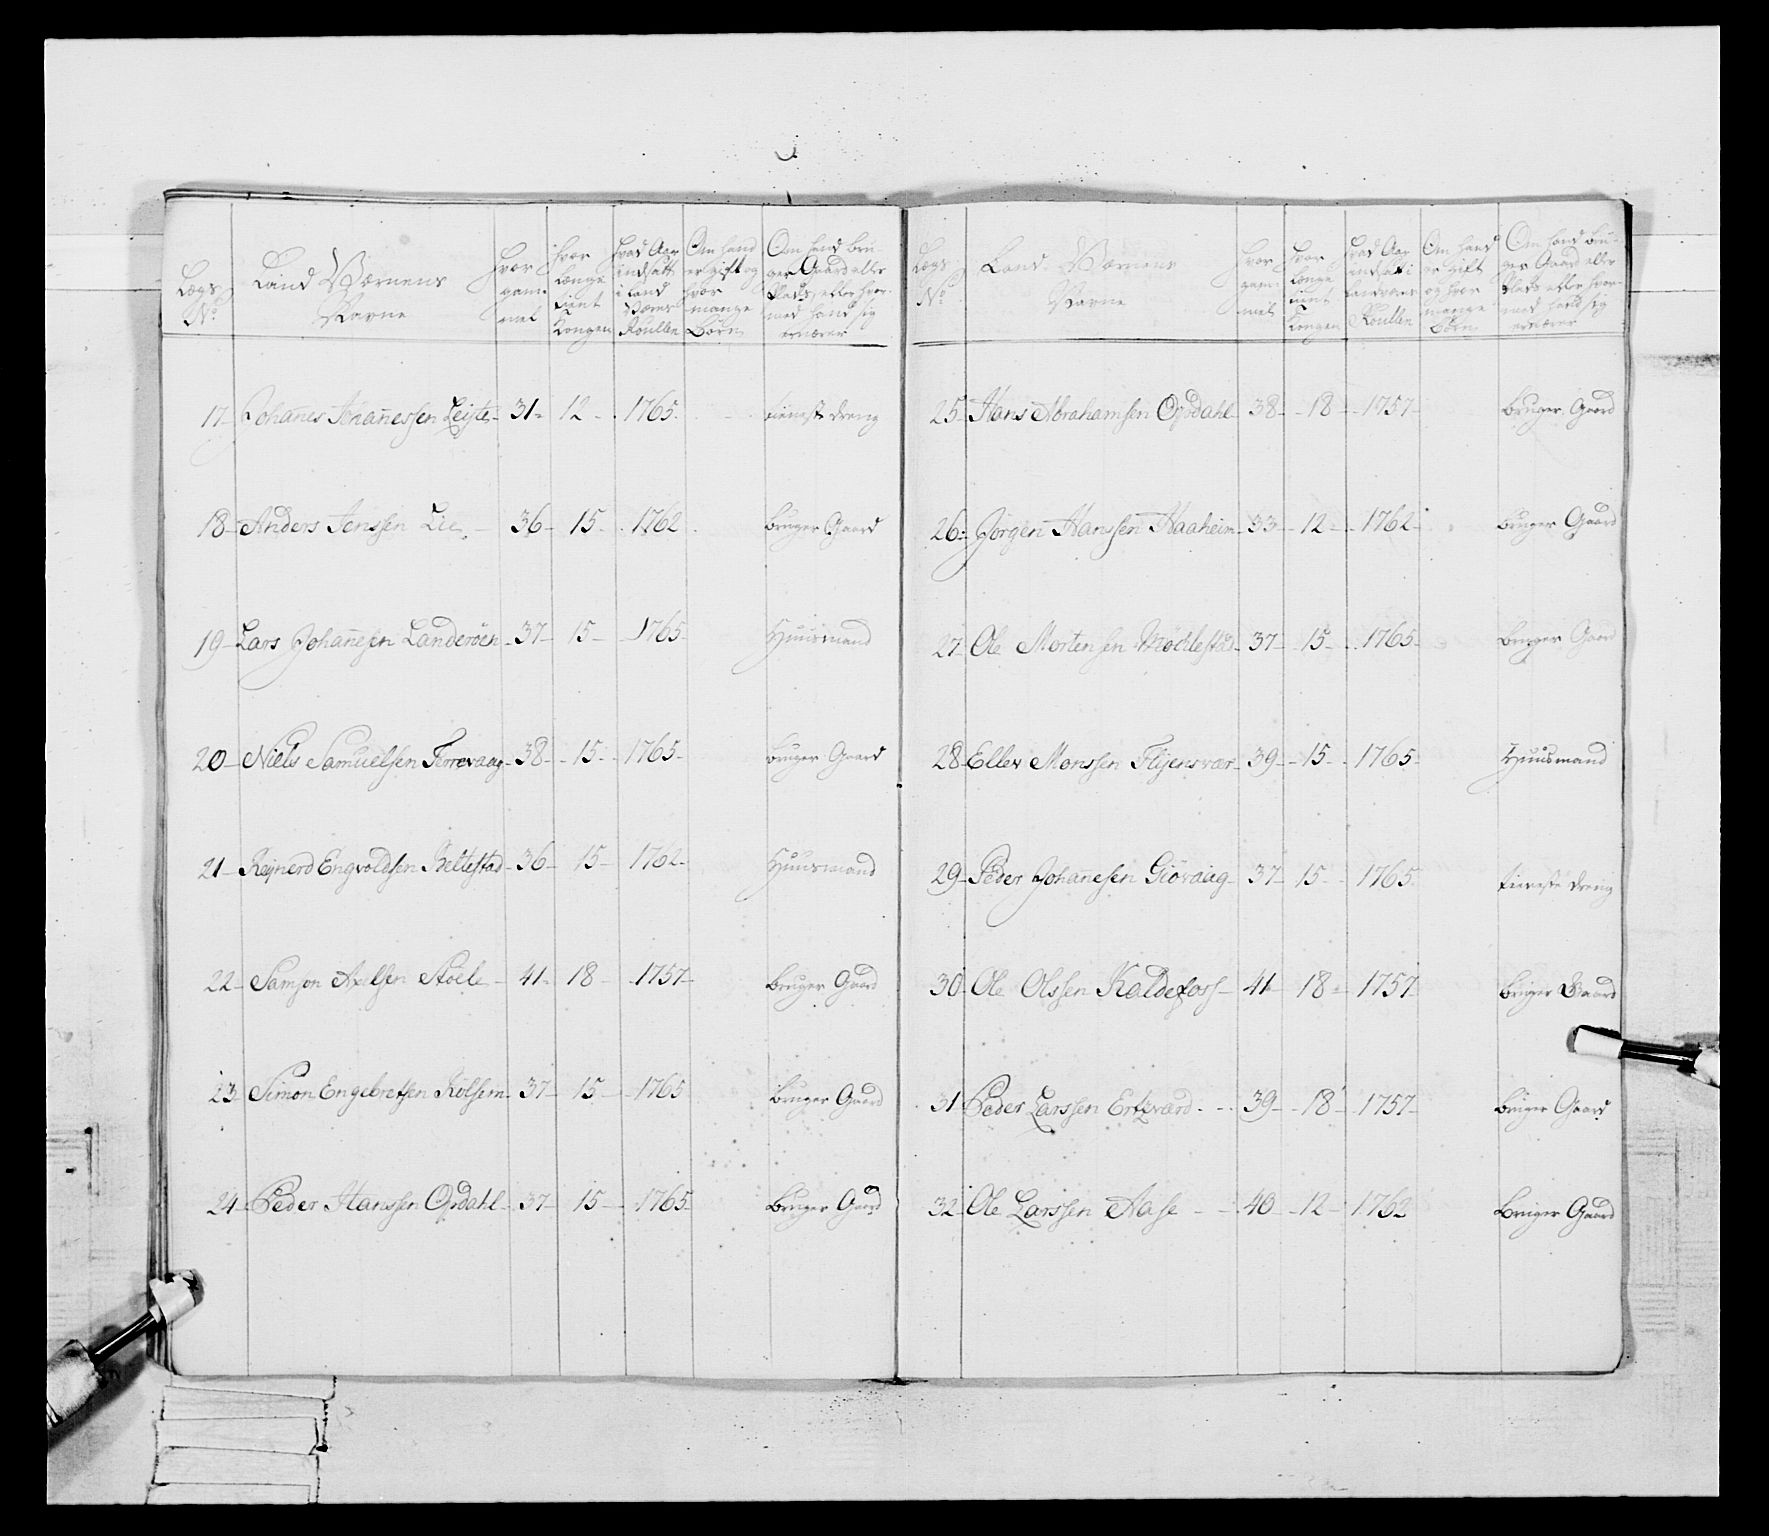 Lægs No | Land Værnens Navne | Hvor gam- mel | Hvor Længe tient Kongen | Hvad Aar indsatt i Land Værns Roullen | Om hand er gift og hvor mange Børn | Om hand bru- ger Gaard eller Plads, eller hvor- med hand sig ernærer
17 | Johanes Johannessen Leiste | 31 | 12 | 1765 | tieneste dreng
18 | Anders Jenssen Lie | 36 | 15 | 1762 | bruger Gaard
19 | Lars Johanesen Landerøen | 37 | 15 | 1765 | Huusmand
20 | Niels Samuelsen Ferrevaag | 38 | 15 | 1765 | bruger Gaard
21 | Reinerd Engvoldsen Beltestad | 36 | 15 | 1762 | Huusmand
22 | Samson Axelsen Støele | 41 | 18 | 1757 | bruger Gaard
23 | Simon Engebretsen Rolsem | 37 | 15 | 1765 | bruger Gaard
24 | Peder Hanssen Opdahl | 37 | 15 | 1765 | bruger Gaard
Lægs No | Land Værnens Navne | Hvor gam- mel | Hvor Længe tient Kongen | Hvad Aar indsatt i Landværns Roullen | Om hand er gift og hvor mange Børn | Om hand bru- ger Gaard eller Plads eller hvor- med hand sig ernærer
25 | Hans Abrahamsen Opdahl | 38 | 18 | 1757 | bruger Gaard
26 | Jørgen Hanssen Haaheim | 33 | 12 | 1762 | bruger Gaard
27 | Ole Mortensen Møchlestad | 37 | 15 | 1765 | bruger Gaard
28 | Ellev Monssen Flijensvær | 39 | 15 | 1765 | Huusmand
29 | Peder Johannesen Giøvaag | 37 | 15 | 1765 | tieneste dreng
30 | Ole Olssen Kaldefoss | 41 | 18 | 1757 | bruger Gaard
31 | Peder Larssen Ertzværd | 39 | 18 | 1757 | bruger Gaard
32 | Ole Larssen Aase | 40 | 12 | 1762 | Bruger Gaard